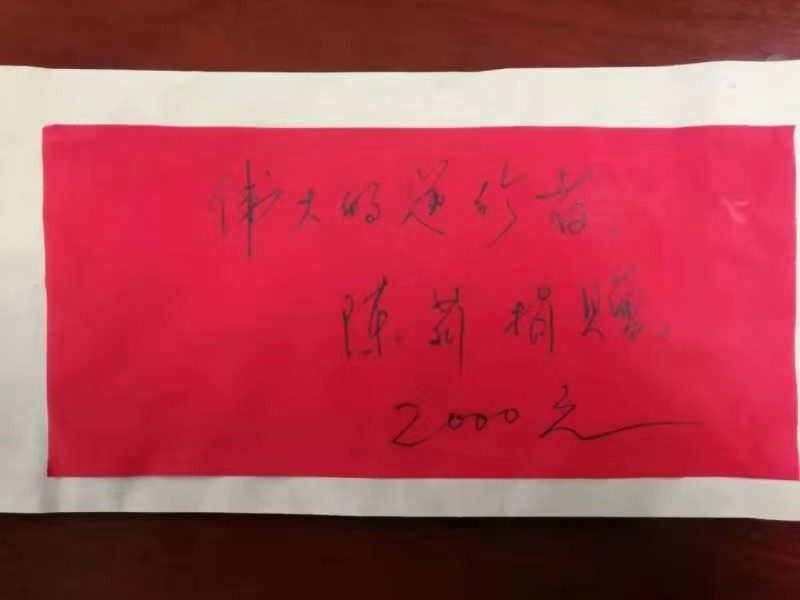 伟大的逆行者:
陈莉捐赠。
2000元